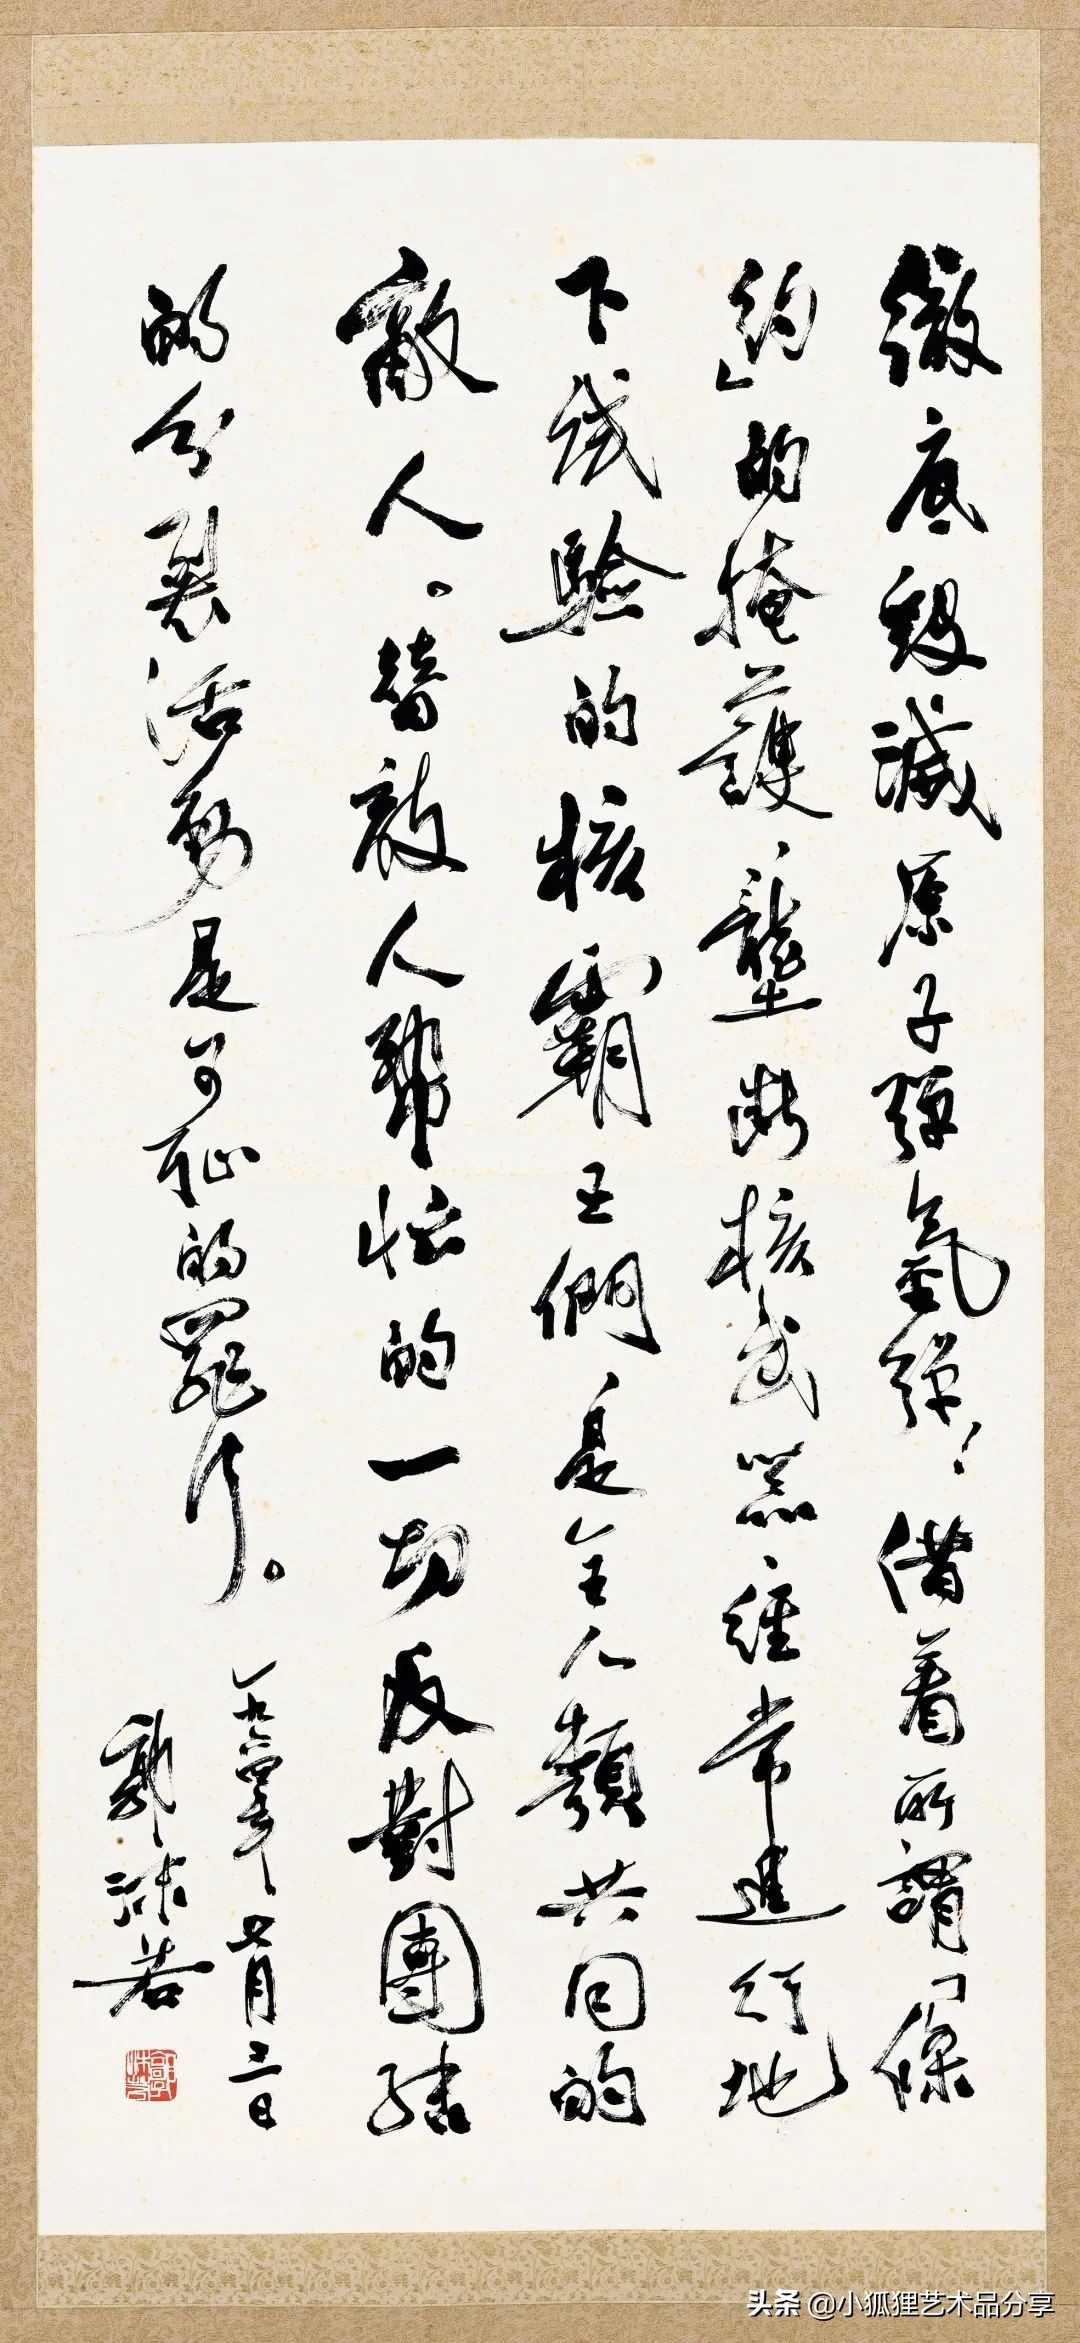 徹底毀滅原子彈氫彈！借着所謂「條
約」的掩護、壟斷核武器、經常進行地
下試驗的核霸王們、是全人類共同的
敵人。替敵人幫忙的一切反對團結
的分裂活動是可恥的罪行。
一九六四年七月三日
郭沫若
郭沫若
头条 @小狐狸艺术品分享